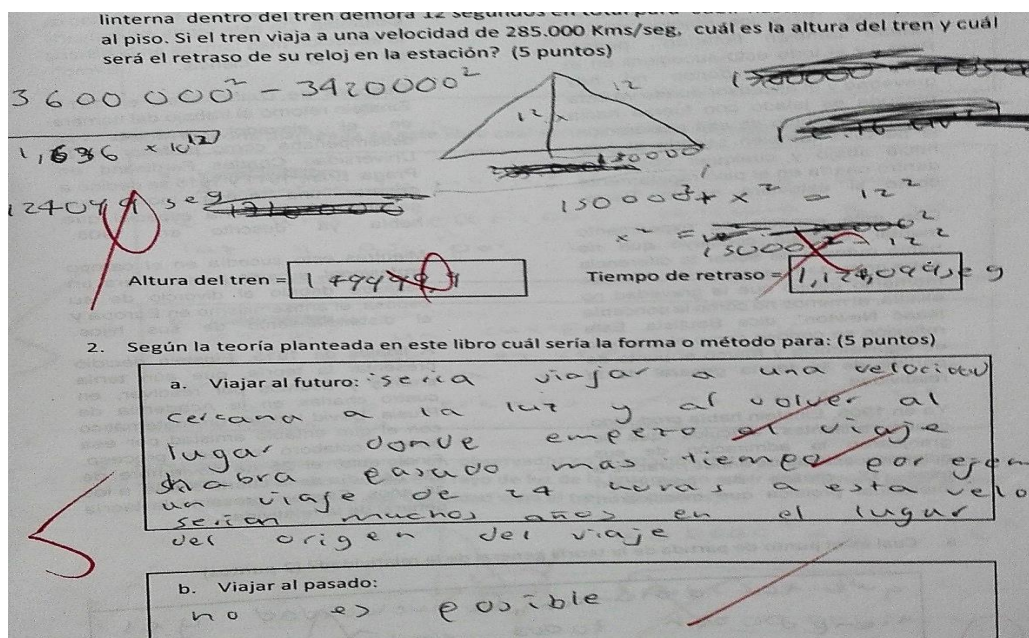 linterna dentro del tren demora 12 segundos en total para
al piso. Si el tren viaja a una velocidad de 285.000 Kms/seg, cuál es la altura del tren y cuál
será el retraso de su reloj en la estación? (5 puntos)
3600000² - 3420000²
12
12 x
150000
1,636 × 10¹²
150000² + x² = 12²
seg
x² =
150002 - 12²
Altura del tren =
Tiempo de retraso =
2. Según la teoría planteada en este libro cuál sería la forma o método para: (5 puntos)
a. Viajar al futuro: seria viajar a una velocidad
cercana a la luz y al volver al
lugar donde empezo el viaje
habra pasado mas tiempo por ejem
un viaje de 24 horas a esta velo
serian muchos años en el lugar
del origen del viaje
b. Viajar al pasado:
no es posible